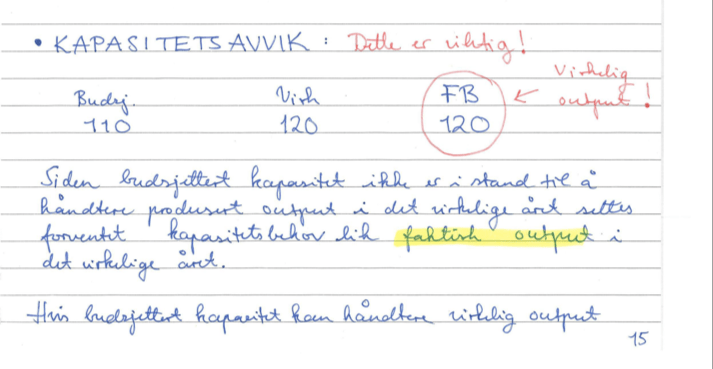 • KAPASITETSAVVIK : Dette er viktig!
Virkelig
output!
Budsj. Virk FB
110 120 120
Siden budsjettert kapasitet ikke er i stand til å
håndtere produsert output i det virkelige året settes
forventet kapasitetsbehov lik faktisk output i
det virkelige året.
Hvis budsjettert kapasitet kan håndtere virkelig output
15